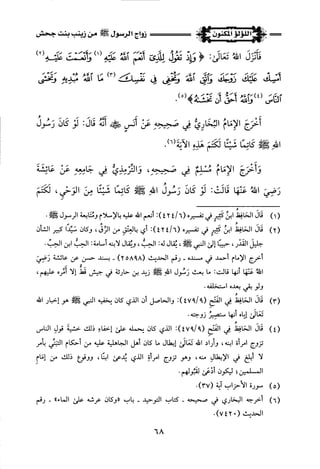 اللؤلؤ المكنون
زواج الرسول ﷺ من زينب بنت جحش
فَأَنْزَلَ اللهُ تَعَالَى: ﴿ وَإِذْ تَقُولُ لِلَّذِي أَنْعَمَ اللَّهُ عَلَيْهِ (١) وَأَنْعَمْتَ عَلَيْهِ (٢)
أَمْسِكْ عَلَيْكَ زَوْجَكَ وَاتَّقِ اللَّهَ وَتُخْفِي فِي نَفْسِكَ (٣) مَا اللَّهُ مُبْدِيهِ وَتَخْشَى
النَّاسَ (٤) وَاللَّهُ أَحَقُّ أَنْ تَخْشَاهُ ﴾(٥).
أَخْرَجَ الإِمَامُ البُخَارِيُّ فِي صَحِيحِهِ عَنْ أَنَسٍ رضي الله عنه قَالَ: لَوْ كَانَ رَسُولُ
اللهِ ﷺ كَاتِمًا شَيْئًا لَكَتَمَ هَذِهِ الآيَةَ(٦).
وَأَخْرَجَ الإِمَامُ مُسْلِمٌ فِي صَحِيحِهِ، وَالتِّرْمِذِيُّ فِي جَامِعِهِ عَنْ عَائِشَةَ
رَضِيَ اللهُ عَنْهَا قَالَتْ: لَوْ كَانَ رَسُولُ اللهِ ﷺ كَاتِمًا شَيْئًا مِنَ الوَحْيِ، لَكَتَمَ
(١) قَالَ الحَافِظُ ابنُ كَثِيرٍ في تفسيره (٤٢٤/٦): أنعم الله عليه بالإسلام ومُتَابعة الرسول ﷺ.
(٢) قَالَ الحَافِظُ ابنُ كَثِيرٍ في تفسيره (٤٢٤/٦): أي بالعِتْقِ من الرِّق، وكان سَيِّدًا كبير الشأن
جليل القدْر، حبيبًا إلى النبي ﷺ، يُقال له: الحِبّ، ويُقال لابنه أسامة: الحِبّ ابن الحِبّ.
أخرج الإمام أحمد في مسنده - رقم الحديث (٢٥٨٩٨) - بسند حسن عن عائشة رَضِيَ
اللهُ عَنْهَا أنها قالت: ما بعث رَسُول اللهِ ﷺ زيد بن حارثة في جيش قط إلا أمّره عليهم،
ولو بقي بعده استخلفه.
(٣) قَالَ الحَافِظُ في الفَتْحِ (٤٧٩/٩): والحاصل أن الذي كان يخفيه النبي ﷺ هو إخبار الله
تَعَالَى إياه أنها ستصير زوجته.
(٤) قَالَ الحَافِظُ في الفَتْحِ (٤٧٩/٩): الذي كان يحمله على إخفاء ذلك خشية قول الناس
تزوج امرأة ابنه، وأراد الله تَعَالَى إبطال ما كان أهل الجاهلية عليه من أحكام التبَنِّي بأمر
لا أبلغ في الإبطال منه، وهو تزوج امرأة الذي يُدعى ابنًا، ووقوع ذلك من إمَامِ
المسلمين، ليكون أدْعَى لقَبُولهم.
(٥) سورة الأحزاب آية (٣٧).
(٦) أخرجه البخاري في صحيحه - كتاب التوحيد - باب «وكان عرشه على الماء» - رقم
الحديث (٧٤٢٠).
٦٨